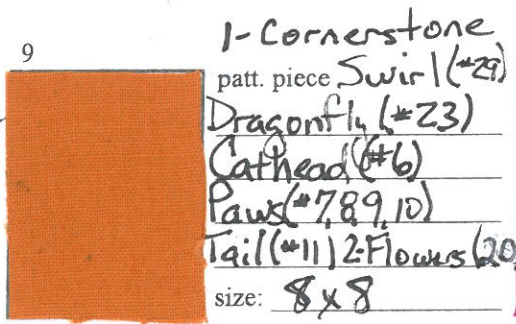 9
1-Cornerstone
patt. piece Swirl (#29)
Dragonfly (#23)
Cathead (#6)
Paws (#7,8,9,10)
Tail (#11) 2-Flowers (20
size: 8x8